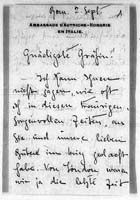 Rom 2. Sept.
AMBASSADE D'AUTRICHE-HONGRIE
EN ITALIE.
Gnädigste Gräfin!
Ich kann Ihnen
nicht sagen wie oft
ich in diesen traurigen
sorgenvollen Zeiten, an
Sie und unsere lieben
habe. Von London waren
wir ja die letzte Zeit